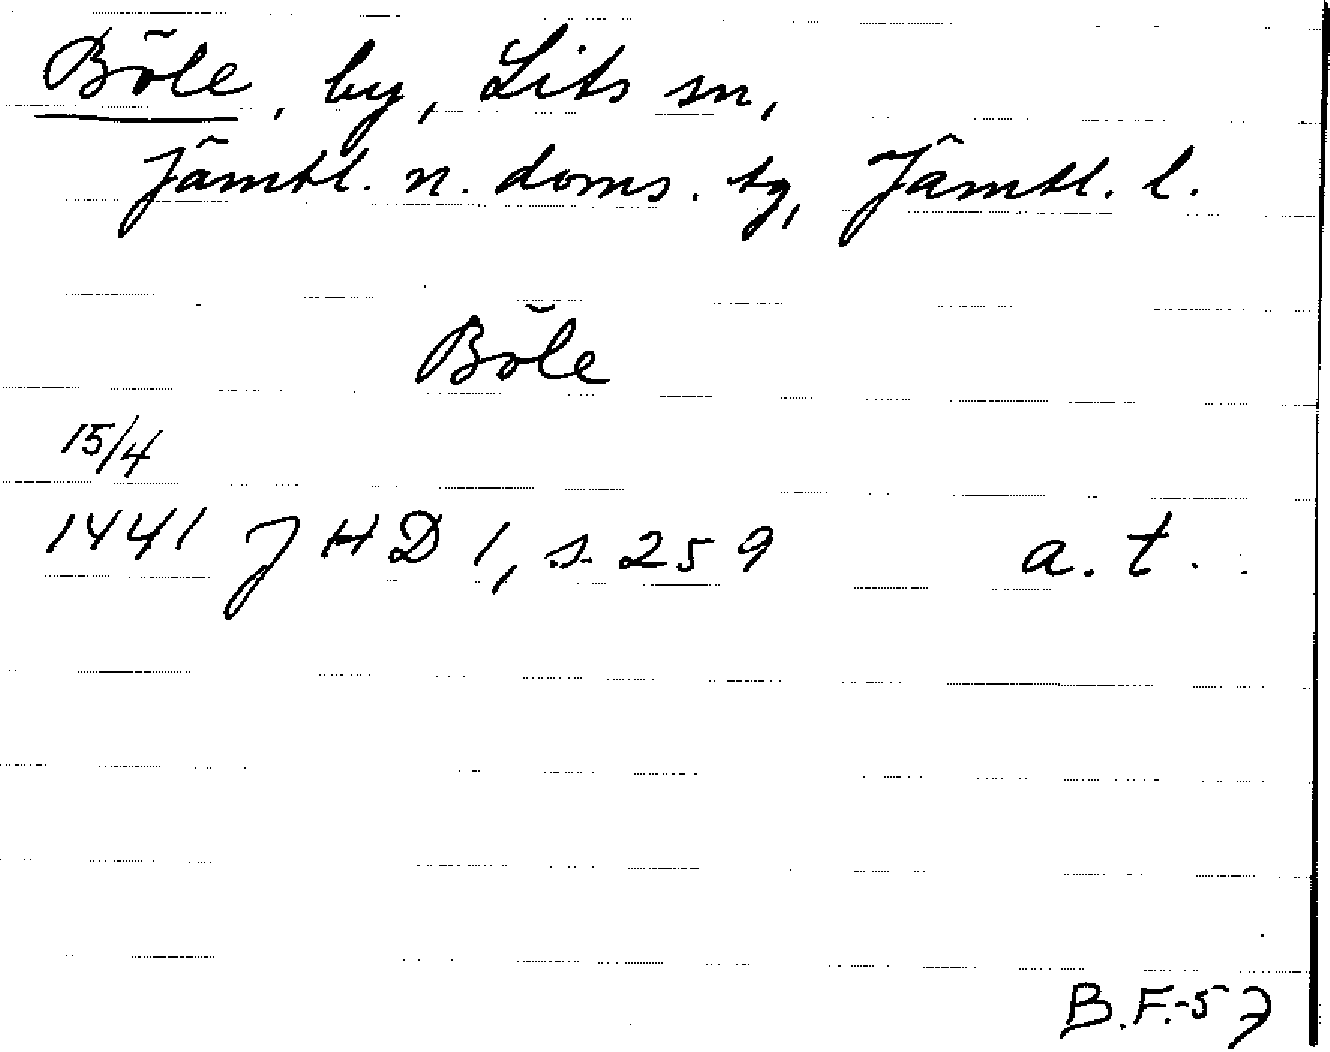 Böle, by, Lits sn,
Jämtl. n. doms. tg, Jämtl. l.
Böle
15/4
1441 JHD 1, s. 259 a. t.
B.F.-57